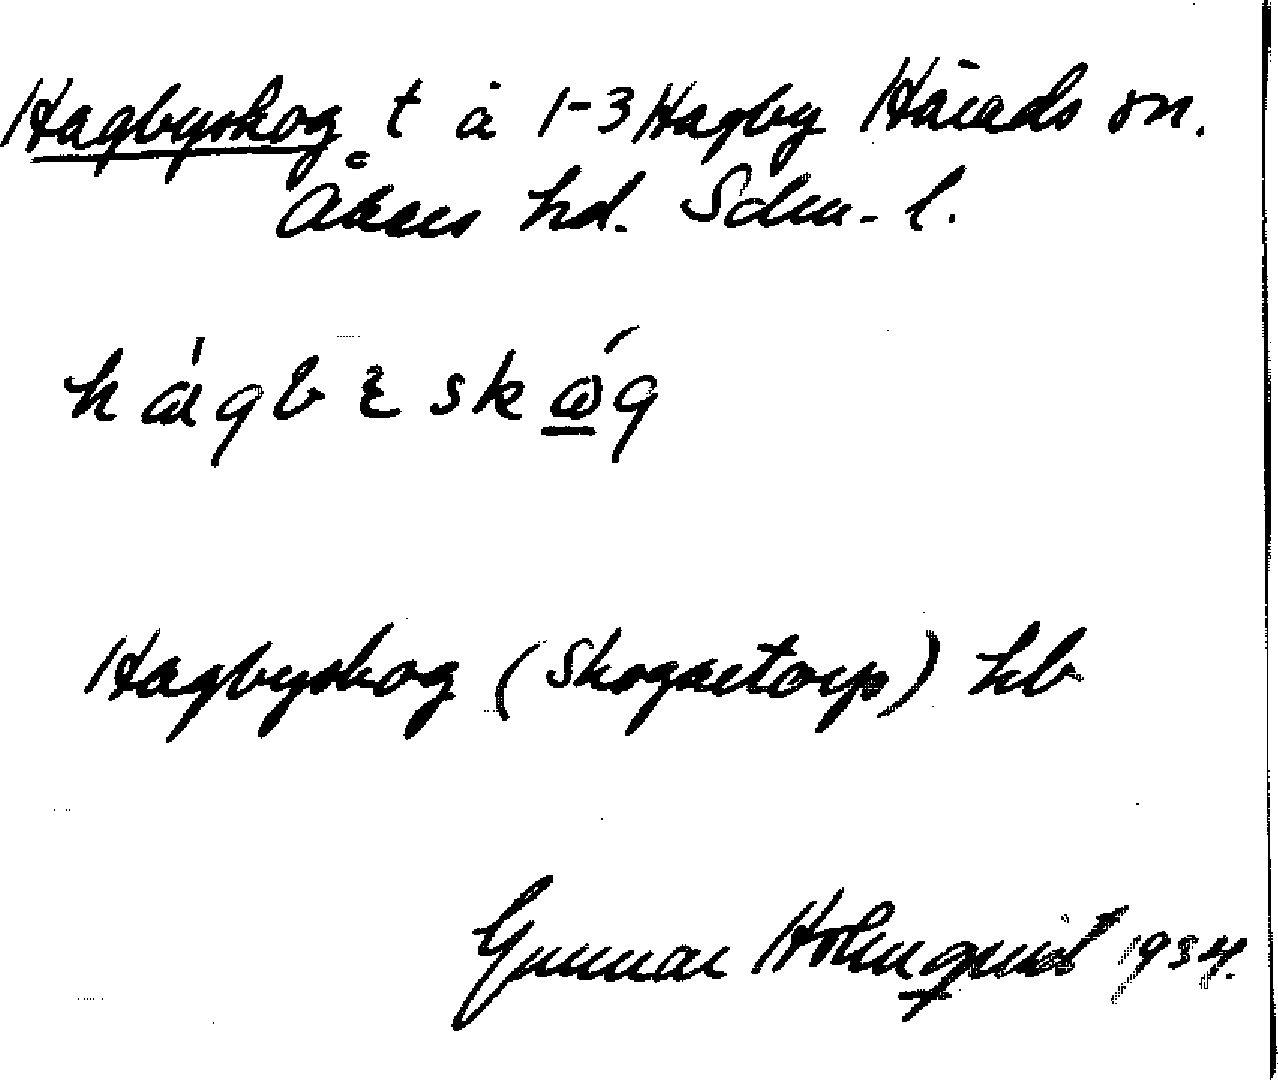 Hagbyskog t å 1-3 Hagby Härads sn.
Åkers hd. Sdm. l.
hágbɛskǿg
Hagbyskog (Skogartorp) kb
Gunnar Holmquist 1934.